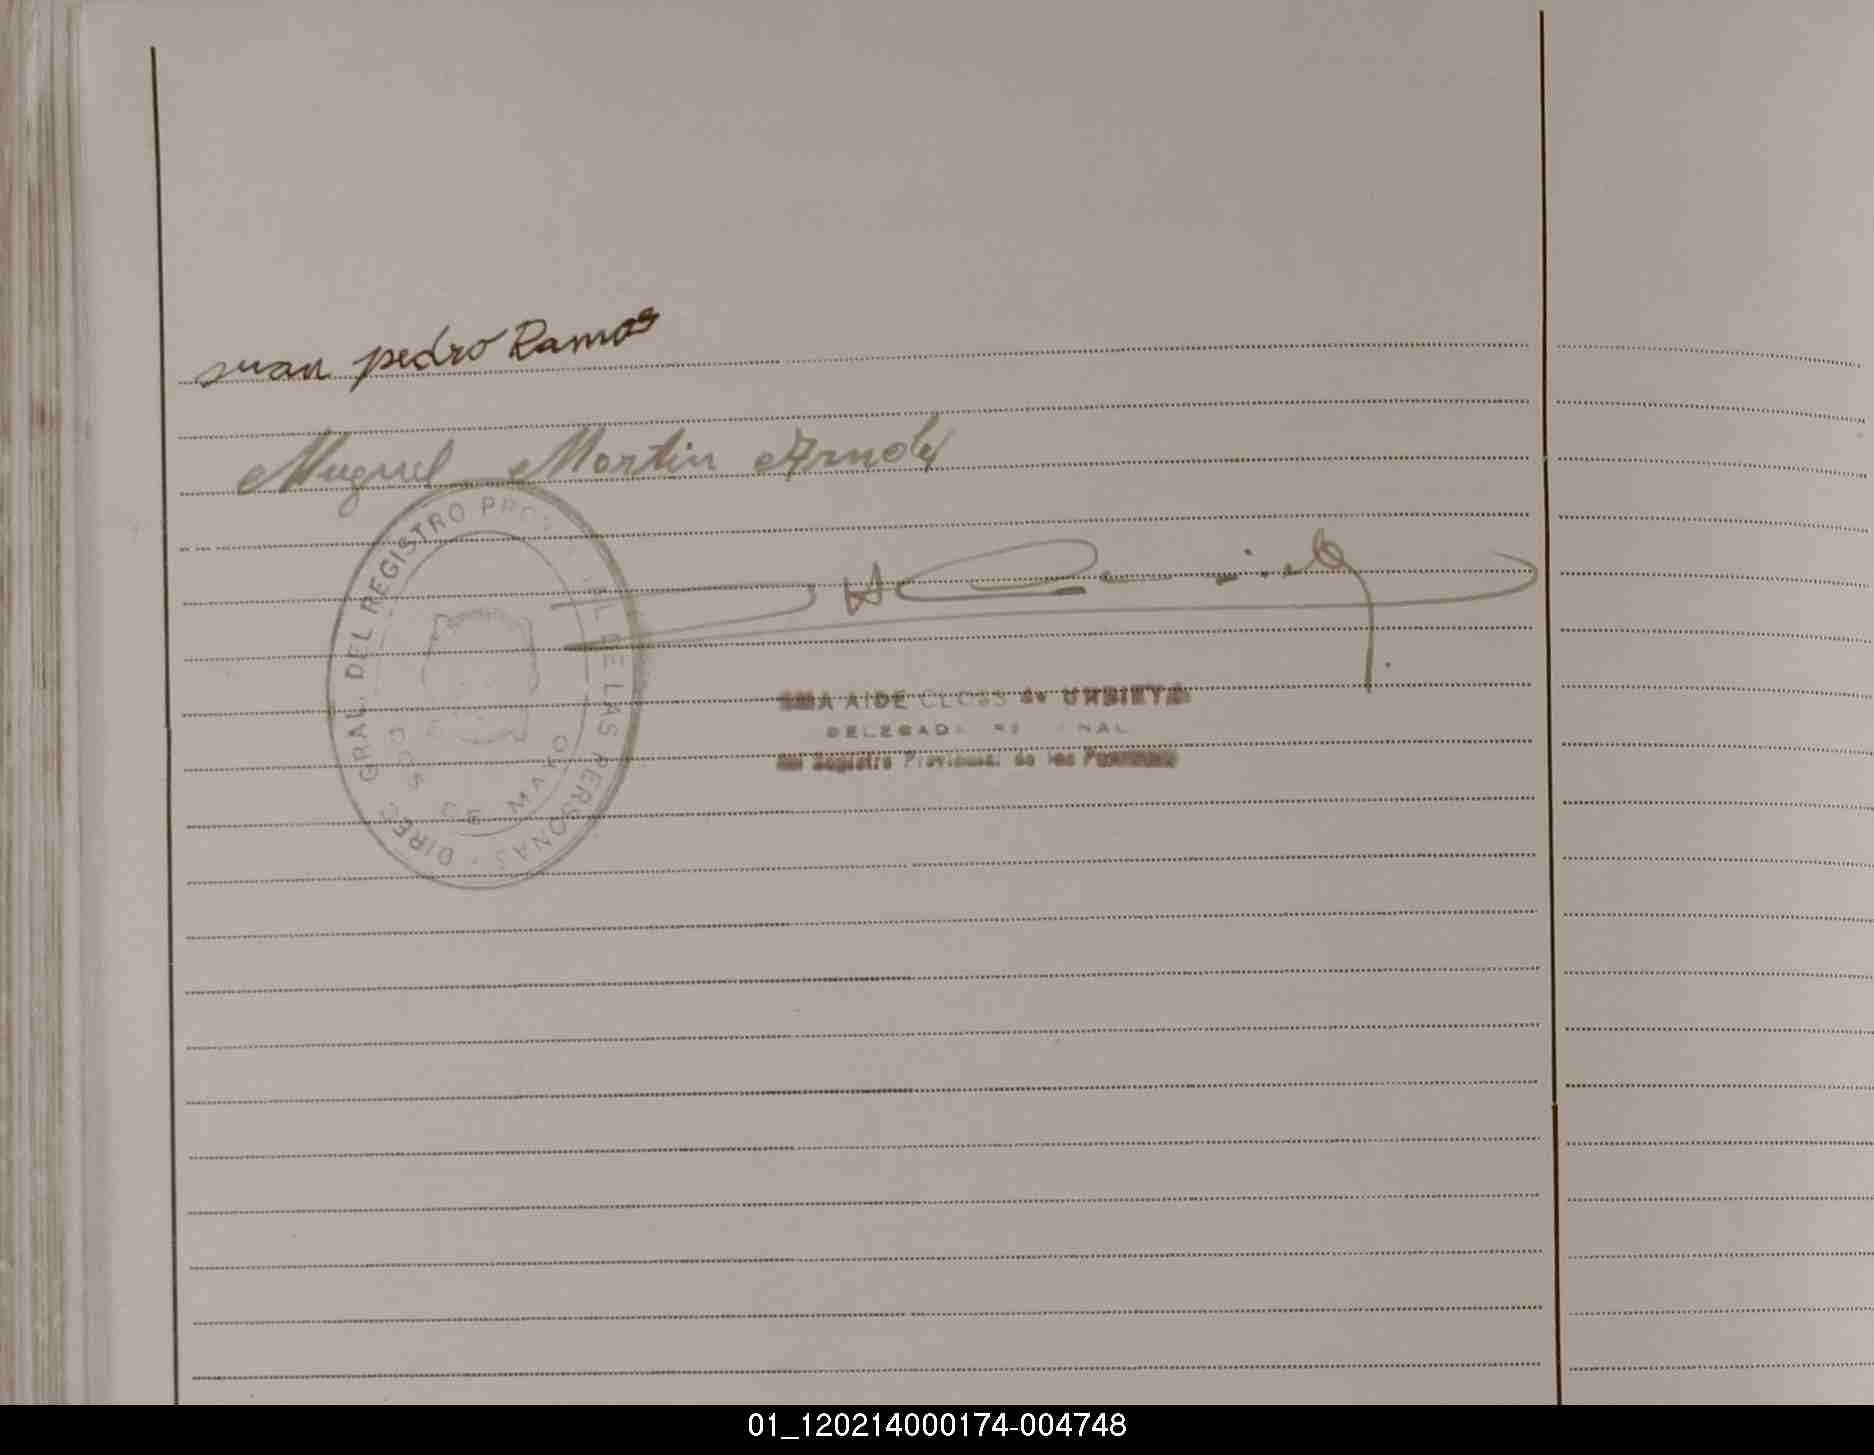 Juan pedro Ramos
Miguel Martin
DIREC. GRAL. DEL REGISTRO PROV. DE LAS PERSONAS
DOS DE MAYO
AIDE CLOSS de URBIETA
DELEGADA
Registro Provincial de las Personas
01_120214000174-004748